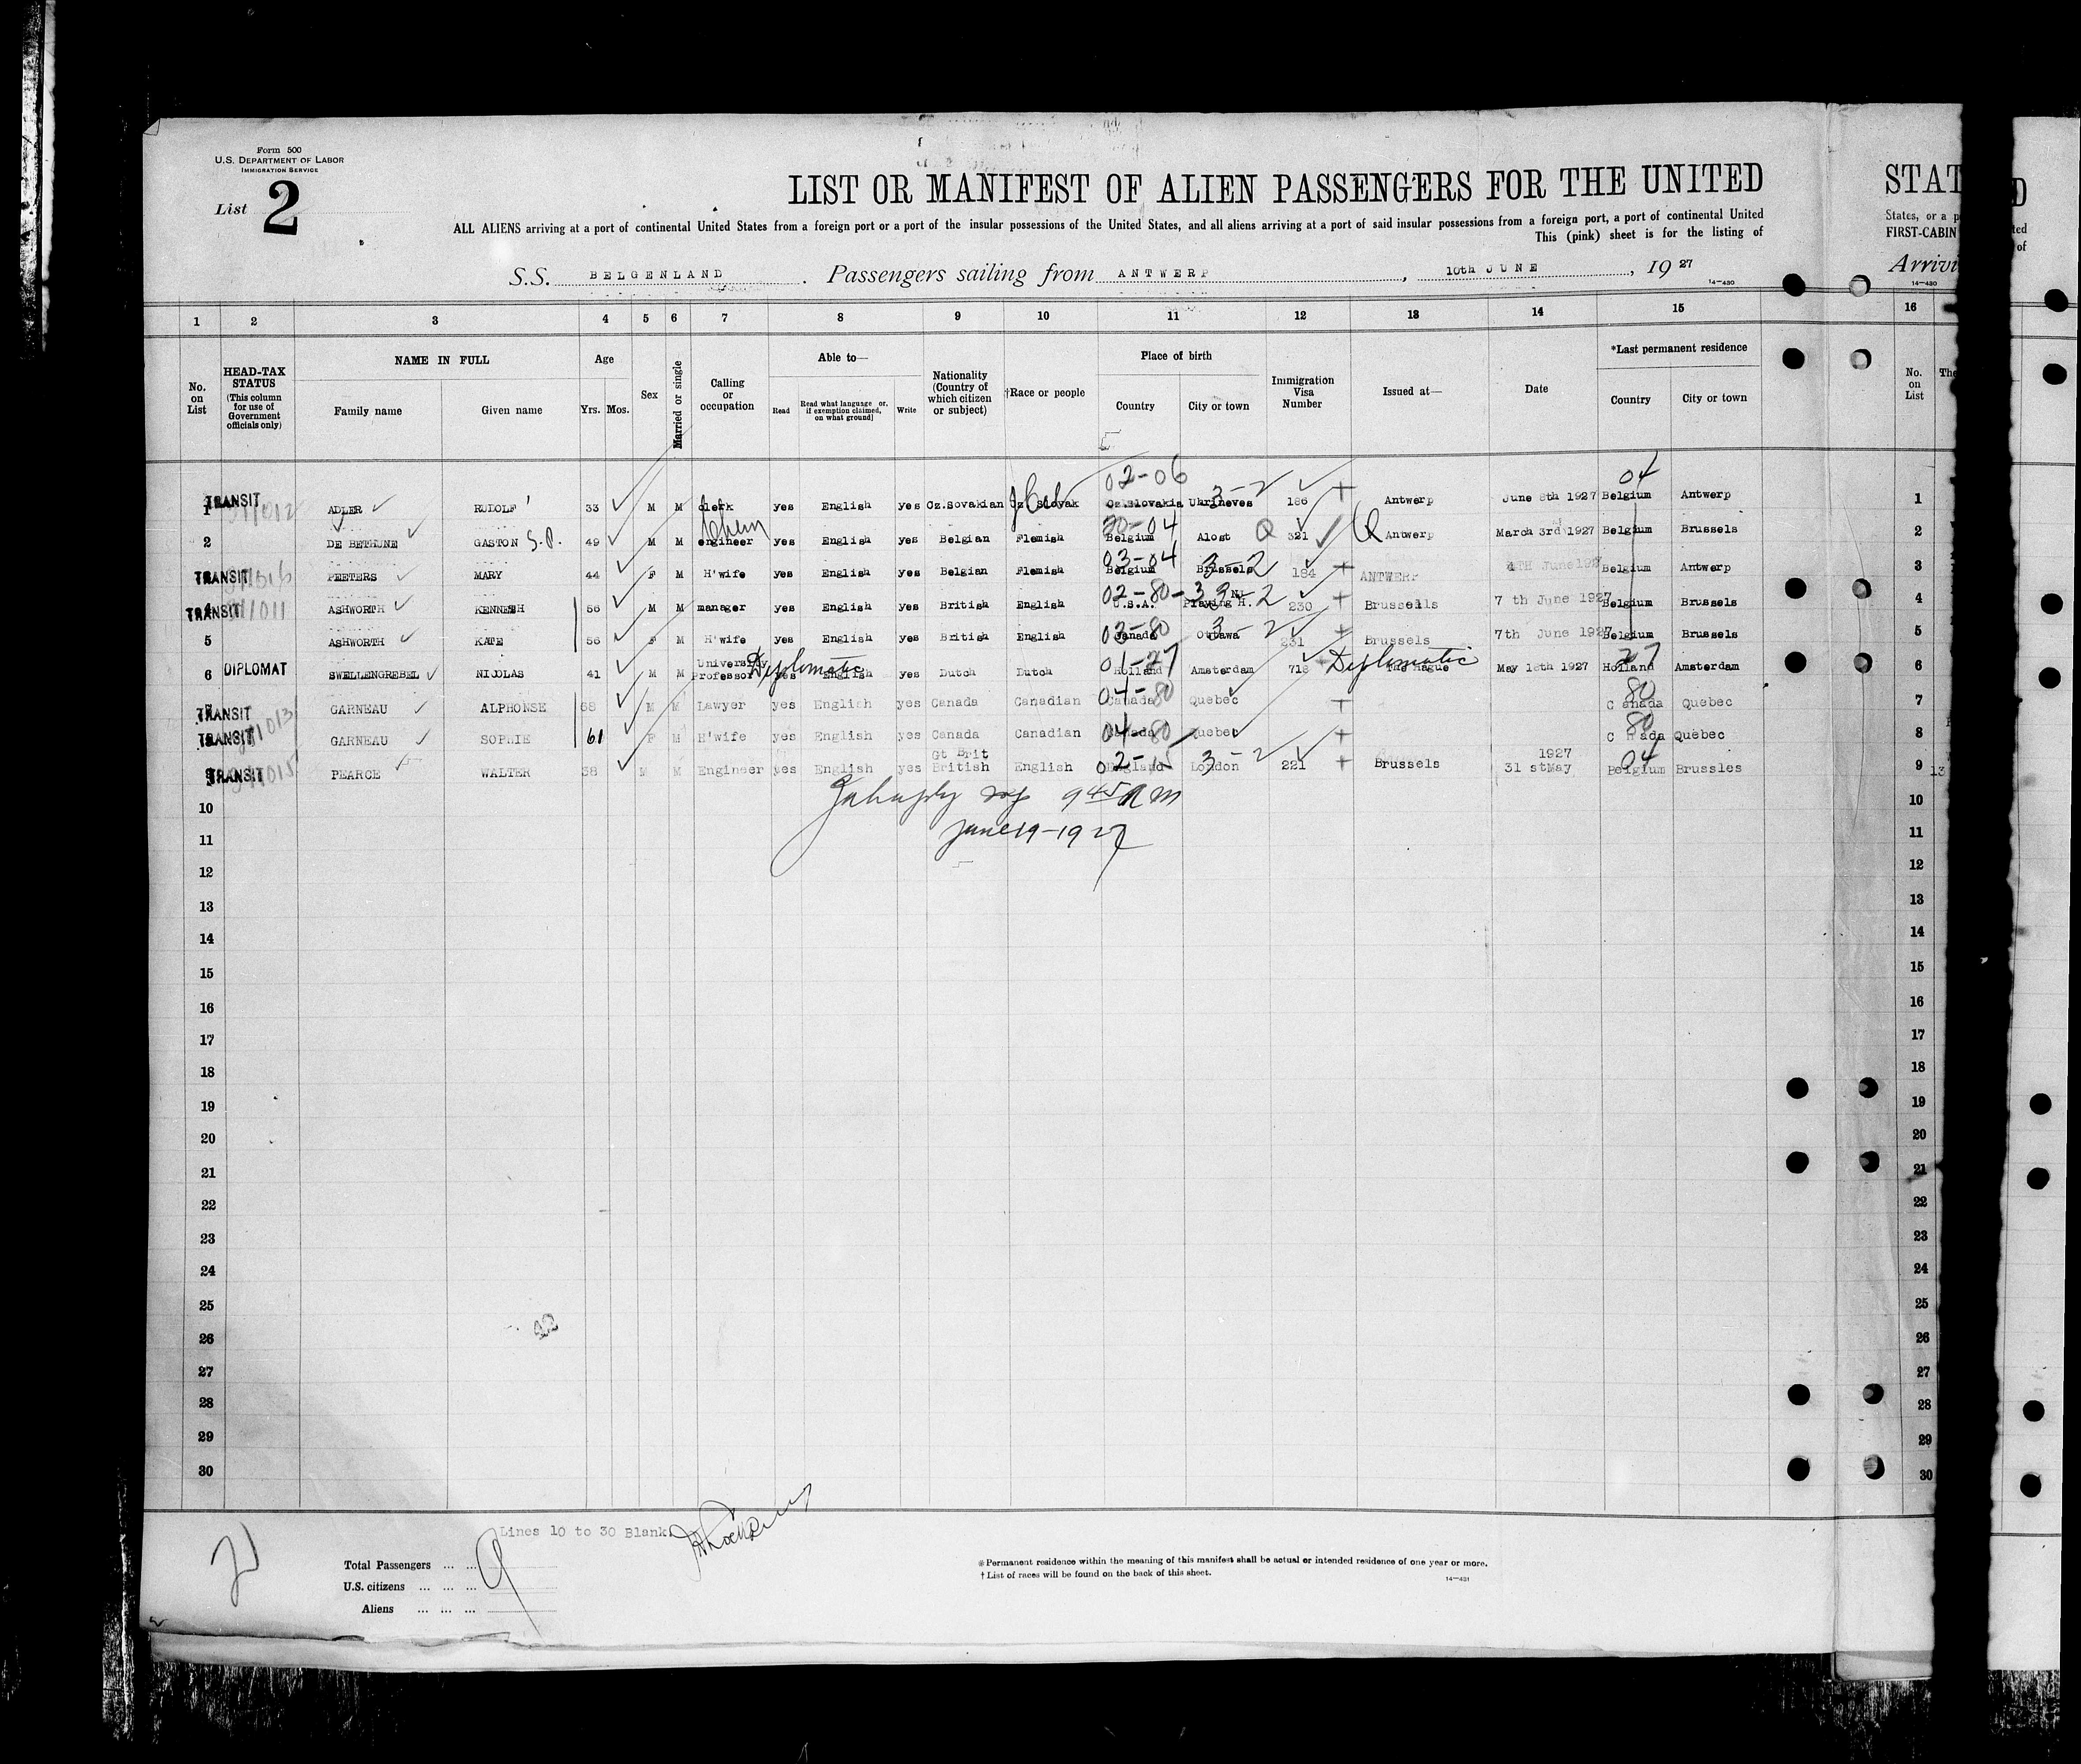 Form 500
U.S. DEPARTMENT OF LABOR
IMMIGRATION SERVICE
List 2
LIST OR MANIFEST OF ALIEN PASSENGERS FOR THE UNITED
ALL ALIENS arriving at a port of continental United States from a foreign port or a port of the insular possessions of the United States, and all aliens arriving at a port of said insular possessions from a foreign port, a port of continental United
This (pink) sheet is for the listing of
S.S. BELGENLAND . Passengers sailing from ANTWERP , 10th JUNE , 19 27
14—430
STAT
States, or a p
FIRST-CABIN
Arrivi
14—430
D
ted
of
1 2 3 4 5 6 7 8 9 10 11 12 13 14 15 16
No. on List
HEAD-TAX STATUS (This column for use of Government officials only)
NAME IN FULL
Family name Given name
Age
Yrs. Mos.
Sex
Married or single
Calling or occupation
Able to—
Read
Read what language or, if exemption claimed, on what ground]
Write
Nationality (Country of which citizen or subject)
†Race or people
Place of birth
Country City or town
Immigration Visa Number
Issued at—
Date
*Last permanent residence
Country City or town
No. on List
The
02-06 04
TRANSIT 1 ADLER RUDOLF 33 M M clerk yes English yes Cz.Sovakian Cz Slovak Cz.Slovakia Uhrineves 3-2 186 Antwerp June 8th 1927 Belgium Antwerp 1
2 DE BETHUNE GASTON S.P. 49 M M Chem engineer yes English yes Belgian Flemish 04 Belgium Alost Q 321 Q Antwerp March 3rd 1927 Belgium Brussels 2
TRANSIT PEETERS MARY 44 F M H'wife yes English yes Belgian Flemish 03-04 Belgium Brussels 3-2 184 ANTWERP 4TH June 192 Belgium Antwerp 3
TRANSIT 4 ASHWORTH KENNETH 56 M M manager yes English yes British English 02-80- U.S.A. 230 Brussells 7 th June 1927 Belgium Brussels 4
5 ASHWORTH KATE 56 F M H'wife yes English yes British English 03-80 Canada Ottawa 3-2 231 Brussels 7th June 1927 Belgium Brussels 5
6 DIPLOMAT SWELLENGREBEL NICOLAS 41 M M University Professor Diplomatic yes English yes Dutch Dutch 01-27 Holland Amsterdam 718 Diplomatic The Hague May 18th 1927 27 Holland Amsterdam 6
TRANSIT GARNEAU ALPHONSE 68 M M Lawyer yes English yes Canada Canadian 04-80 Canada Quebec 80 C anada Quebec 7
TRANSIT GARNEAU SOPHIE 61 F M H'wife yes English yes Canada Canadian 04-80 Canada Quebec 80 C n ada Quebec 8
TRANSIT 9 PEARCE WALTER 38 M M Engineer yes English yes Gt Brit British English 02-15 England London 3-2 221 Brussels 1927 31 stMay 04 Belgium Brussles 9 13
10 9 45 AM 10
11 June 19-1927 11
12 12
13 13
14 14
15 15
16 16
17 17
18 18
19 19
20 20
21 21
22 22
23 23
24 24
25 25
26 26
27 27
28 28
29 29
30 30
Lines 10 to 30 Blank
Total Passengers ... ... 9
U.S. citizens ... ... ...
Aliens ... ... ...
*Permanent residence within the meaning of this manifest shall be actual or intended residence of one year or more.
†List of races will be found on the back of this sheet.
14—431